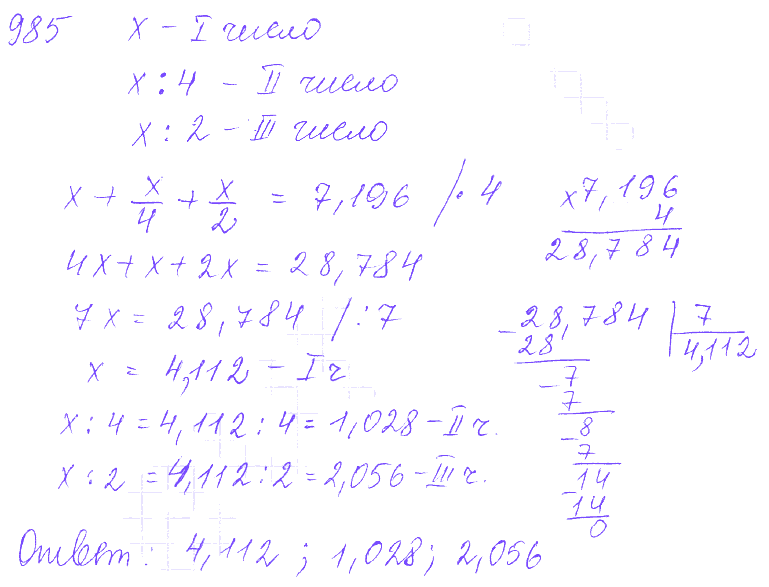 985 x – I число
x : 4 – II число
x : 2 – III число
x + x/4 + x/2 = 7,196 / · 4
4x + x + 2x = 28,784
7x = 28,784 / : 7
x = 4,112 – I ч
x : 4 = 4,112 : 4 = 1,028 – II ч.
x : 2 = 4,112 : 2 = 2,056 – III ч.
Ответ: 4,112 ; 1,028; 2,056
x 7,196
4
28,784
- 28,784 | 7
28 4,112
- 7
7
- 8
7
- 14
14
0